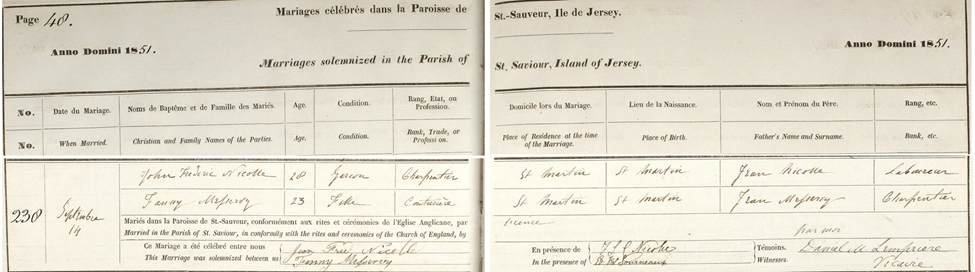 Page 48.
Mariages célébrés dans la Paroisse de
St.-Sauveur, Ile de Jersey.
Anno Domini 1851.
Anno Domini 1851.
Marriages solemnized in the Parish of
St. Saviour, Island of Jersey.
No. Date du Mariage. Noms de Baptême et de Famille des Mariés. Age. Condition. Rang, Etat, ou Profession. Domicile lors du Mariage. Lieu de la Naissance. Nom et Prénom du Père. Rang, etc.
No. When Married. Christian and Family Names of the Parties. Age. Condition. Rank, Trade, or Profession. Place of Residence at the time of the Marriage. Place of Birth. Father's Name and Surname. Rank, etc.
John Frederic Nicolle 28 Garcon Charpentier St Martin St Martin Jean Nicolle Laboureur
238 Septembre 14 Fanny Messervy 23 Fille Couturière St Martin St Martin Jean Messervy Charpentier
Mariés dans la Paroisse de St.-Sauveur, conformément aux rites et cérémonies de l'Eglise Anglicane, par
licence
par moi
Married in the Parish of St. Saviour, in conformity with the rites and ceremonies of the Church of England, by
Ce Mariage a été célébré entre nous Jean Fréd Nicolle
En présence de Nicolle Témoins. Daniel Lempriere
This Marriage was solemnized between us Fanny Messervy
In the presence of Witnesses. Vicaire